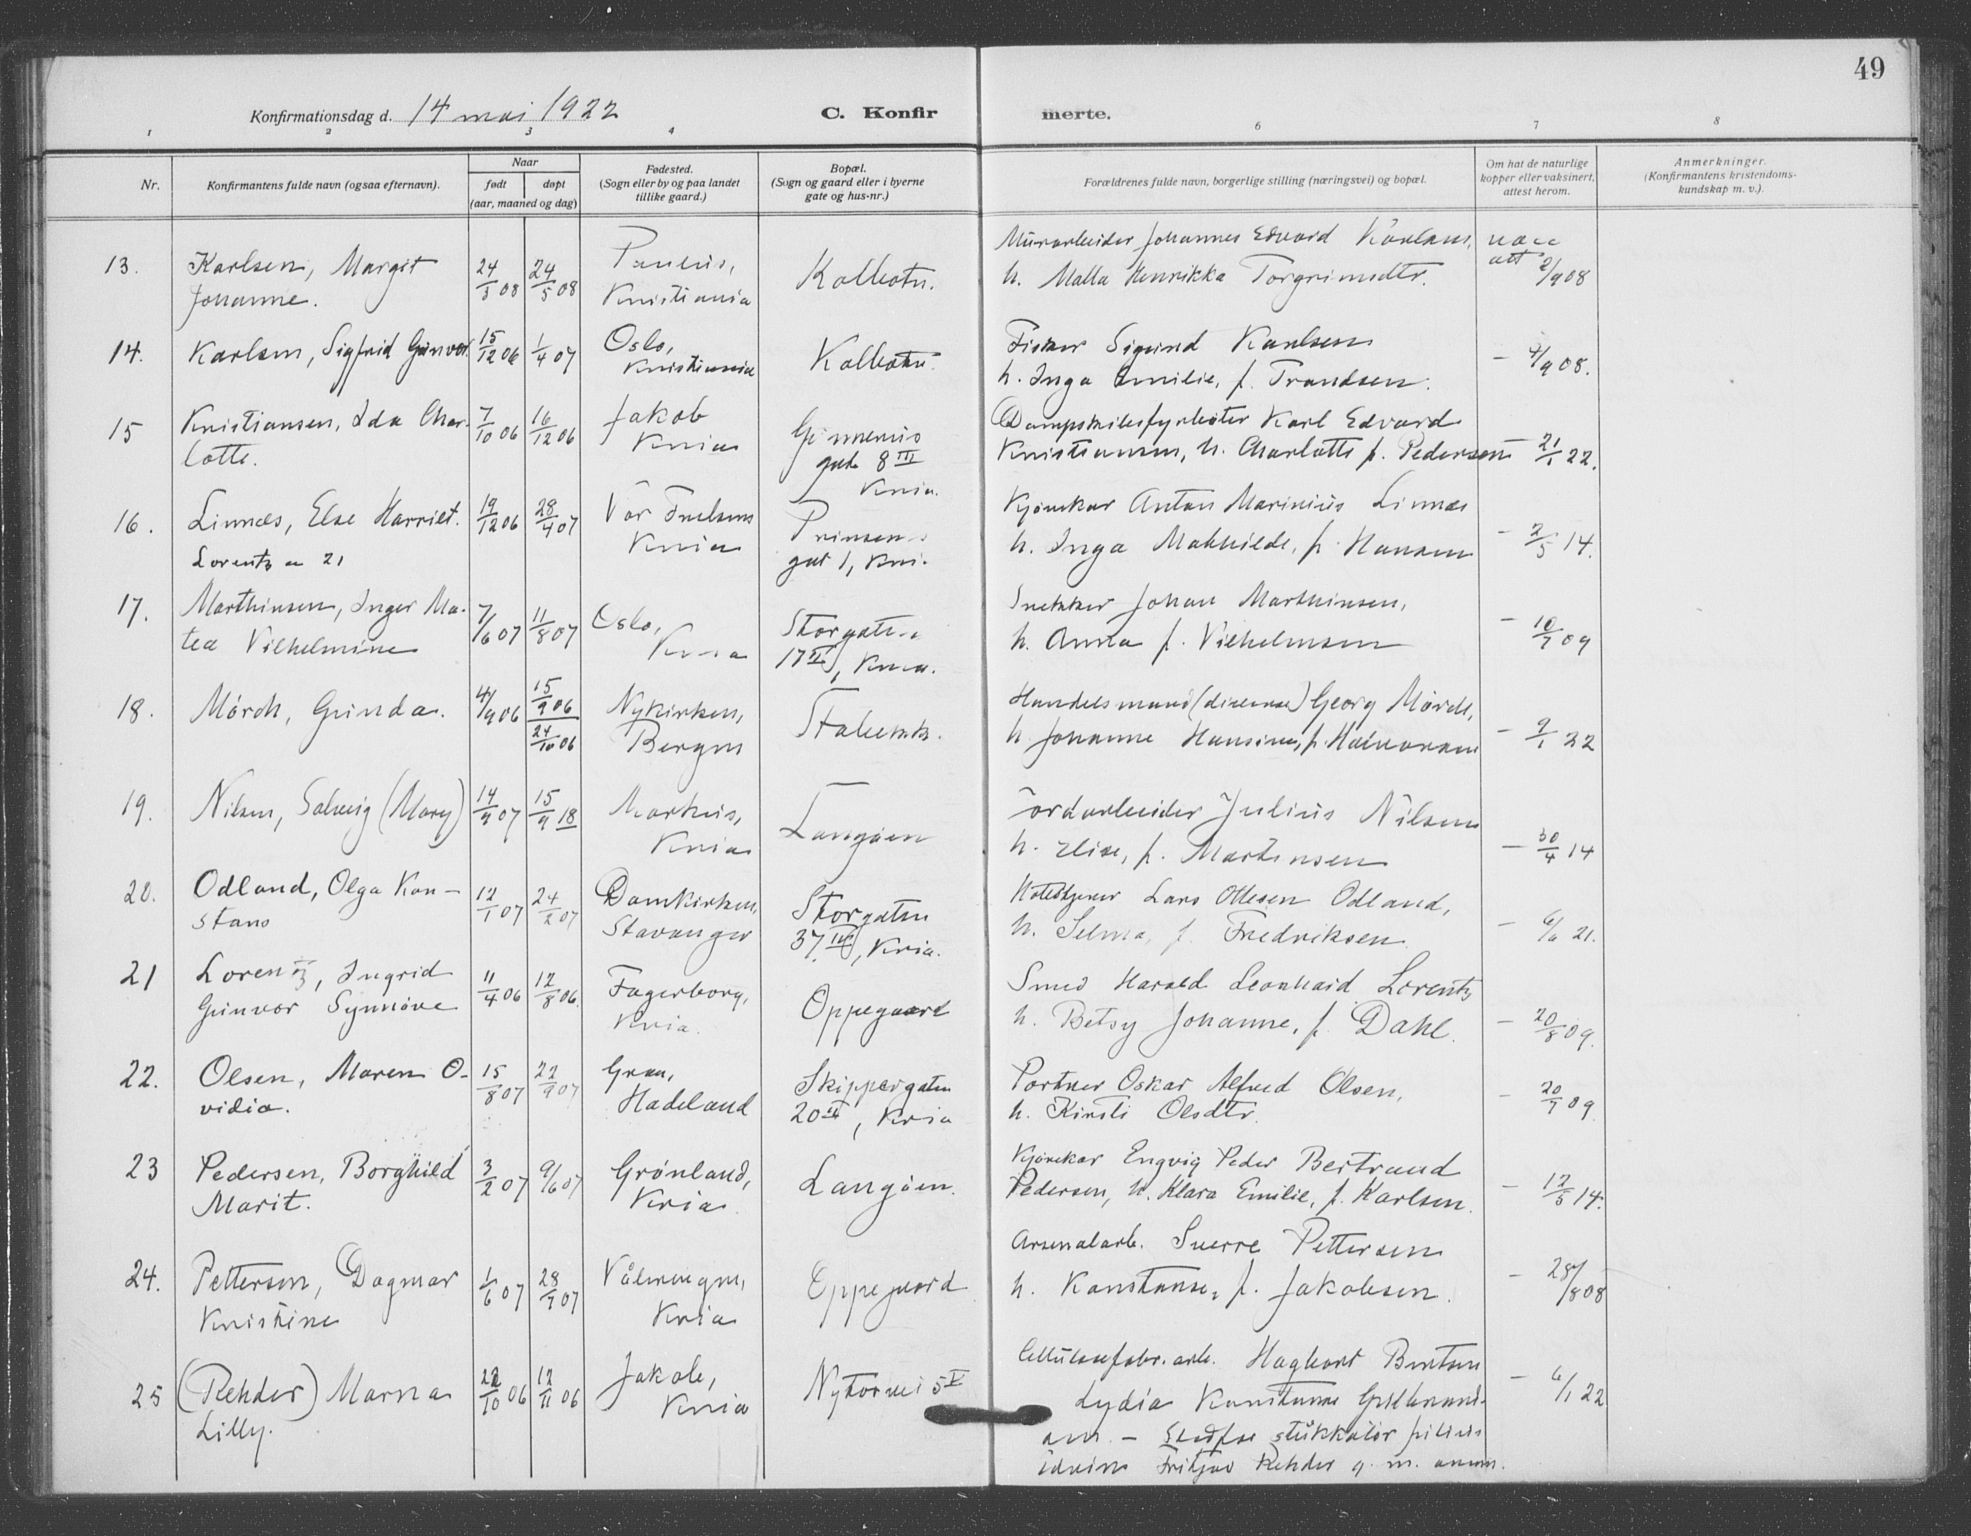 49
Konfirmationsdag d. 14 mai 1922 C. Konfirmerte.
1 2 3 4 6 7 8
Nr.
Konfirmantens fulde navn (ogsaa efternavn).
Naar
født døpt
(aar, maaned og dag)
Fødested.
(Sogn eller by og paa landet
tillike gaard.)
Bopæl.
(Sogn og gaard eller i byerne
gate og hus-nr.)
Forældrenes fulde navn, borgerlige stilling (næringsvei) og bopæl.
Om hat de naturlige
kopper eller vaksinert,
attest herom.
Anmerkninger.
(Konfirmantens kristendoms-
kundskap m. v.).
13. Karlsen, Margit 24/3 08 24/5 08 Paulus, Kolbotn. Murarbeider Johannes Edvard Karlsen, vacc
Johanne. Kristiania h. Malla Henrikka Torgrimsdtr. att 2/9 08
14. Karlsen, Sigfrid Gunvor. 15/12 06 1/4 07 Oslo, Kolbotn. Fisker Sigurd Karlsen
Kristiania h. Inga Emilie, f. Trandsen. — 4/9 08.
15 Kristiansen, Ida Char- 7/10 06 16/12 06 Jakob Dampskibsfyrbøter Karl Edvard
lotte. Kria gate 8 III Kristiansen, h. Charlotte f. Pedersen — 21/1 22.
Kria.
16. Linnæs, Else Harriet. 19/12 06 28/4 07 Vor Frelsers Prinsens Kjørekar Anton Marinius Linnæs
Kria gat 1, Kri. h. Inga Mathilde, f. Hansen — 2/5 14.
Lorentz no 21
17. Marthinsen, Inger Ma- 7/6 07 11/8 07 Oslo, Storgaten Snekker Johan Marthinsen,
tea Vilhelmine Kria 17 II, Kria. h. Anna f. Vilhelmsen — 10/7 09
18. Mörch, Gunda. 4/9 06 15/9 06 Nykirken, Handelsmand Georg Mörch,
24/10 06 Bergen h. Johanne Hansine, f. Halvorsen — 9/1 22
19. Nilsen, Solveig (Mary) 14/4 07 15/9 18 Markus, Langøen Jordarbeider Julius Nilsen
Kria h. Elise, f. Martinsen — 30/4 14
20. Odland, Olga Kon- 12/1 07 24/2 07 Domkirken, Storgaten Lars Ottesen Odland,
stans Stavanger 37 III, Kria. h. Selma, f. Fredriksen — 21.
21 Lorentz, Ingrid 11/4 06 12/8 06. Fagerborg, Oppegaard Smed Harald Leonhard Lorentz
Gunvor Synnöve Kria. h. Betsy Johanne, f. Dahl. — 20/8 09.
22. Olsen, Maren O- 15/8 07 22/9 07 Gran, Skippergaten Portner Oskar Alfred Olsen,
vidia. Hadeland 20 II, Kria h. Kirsti Olsdtr. — 20/7 09
23 Pedersen, Borghild 3/2 07 9/6 07 Grönland, Langöen. Kjørekar Engvig Peder Bertrand
Marit. Kria Pedersen, h. Klara Emilie, f. Karlsen. — 12/5 14.
24. Pettersen, Dagmar 1/6 07 28/7 07 Vålerengen, Oppegaard Arsenalarb. Sverre Pettersen
Kristine Kria h. Konstanse, f. Jakobsen. — 28/8 08
25 (Rehder) Marna 22/10 06 12/11 06 Jakob, Nytorvei 5 V Cellulosefabr. arb. Hagbart Berntsen
Lilly. Kria Lydia Konstanse — 6/1 22
stukkatør
Fritjov Rehder